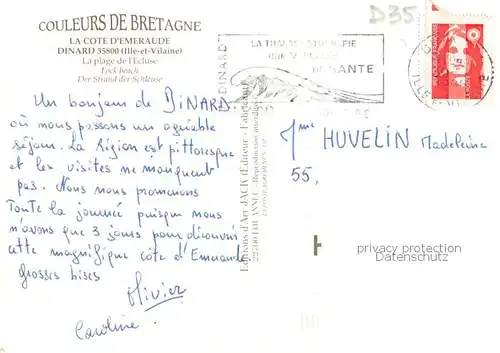 COULEURS DE BRETAGNE
LA COTE D'EMERAUDE
DINARD 35800 (Ille-et-Vilaine)
La plage de l'Ecluse
Lock-beach
Der Strand der Schleuse
D35
DINARD
LA THALASSOTHERAPIE
SANTE
Un bonjour de DINARD
où nous passons un agréable
séjour. La Région est pittoresque
et les visites ne manquent
pas. Nous nous promenons
Toute la journée puisque nous
n'avons que 3 jours pour découvrir
cette magnifique côte d'Emeraude
Grosses bises
Olivier
Caroline
Editions d'Art JACK Editeur - Fabricant
22700 LOUANNEC - Reproduction interdite
Mme HUVELIN Madeleine
55,
privacy protection
Datenschutz